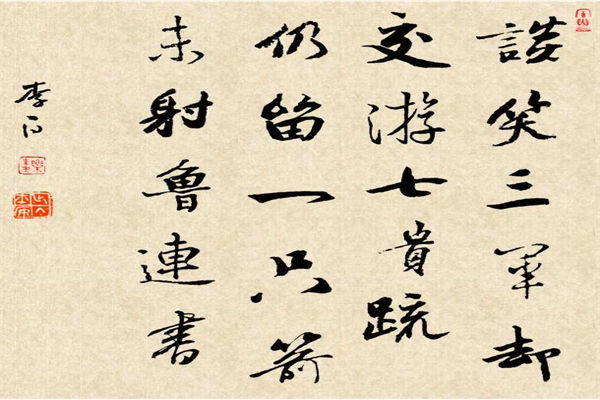 談笑三軍却
交游七貴疏
仍留一只箭
未射魯連書
李